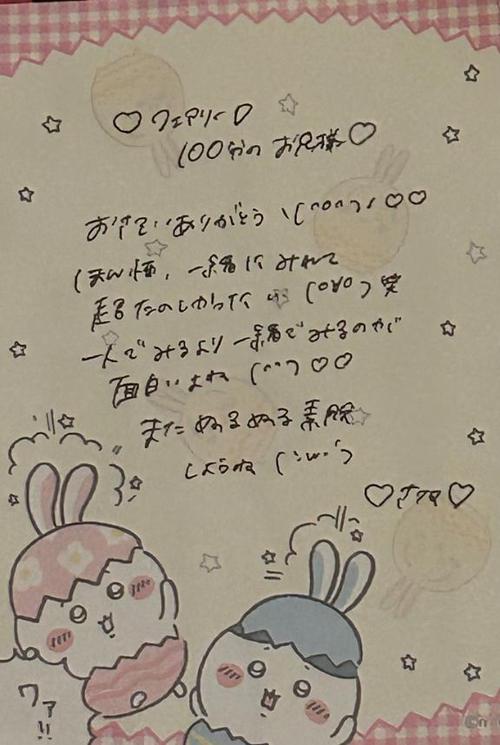 ♡フェアリー♡
100分の お兄様♡
おけてい ありがとう \(^o^)/ ♡♡
一緒に みれて
超たのしかった (^o^) 笑
一人でみるより 一緒でみるのが
面白いよね (^^) ♡♡
また ぬるぬる 素股
しようね ('ω')
♡ ♡
ワァ!!